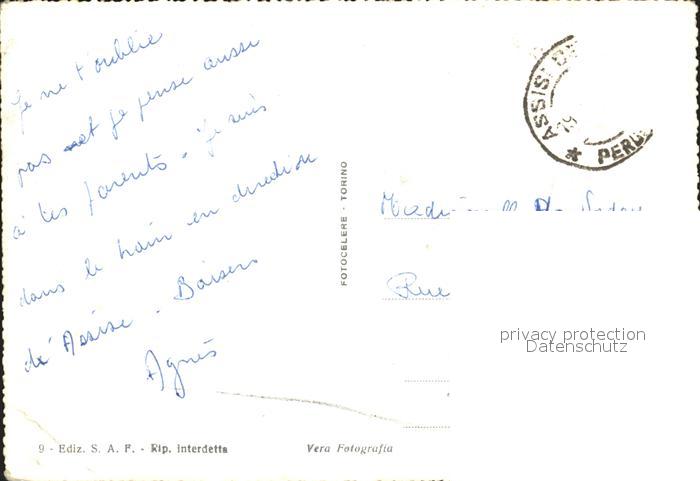 Je ne t'oublie
pas et je pense aussi
à tes parents. Je suis
dans le train en direction
de Assise. Baisers
Agnès
ASSISI
PERU
*
FOTOCELERE - TORINO
Rue
privacy protection
Datenschutz
9 - Ediz. S. A. F. - Rip. interdetta
Vera Fotografia